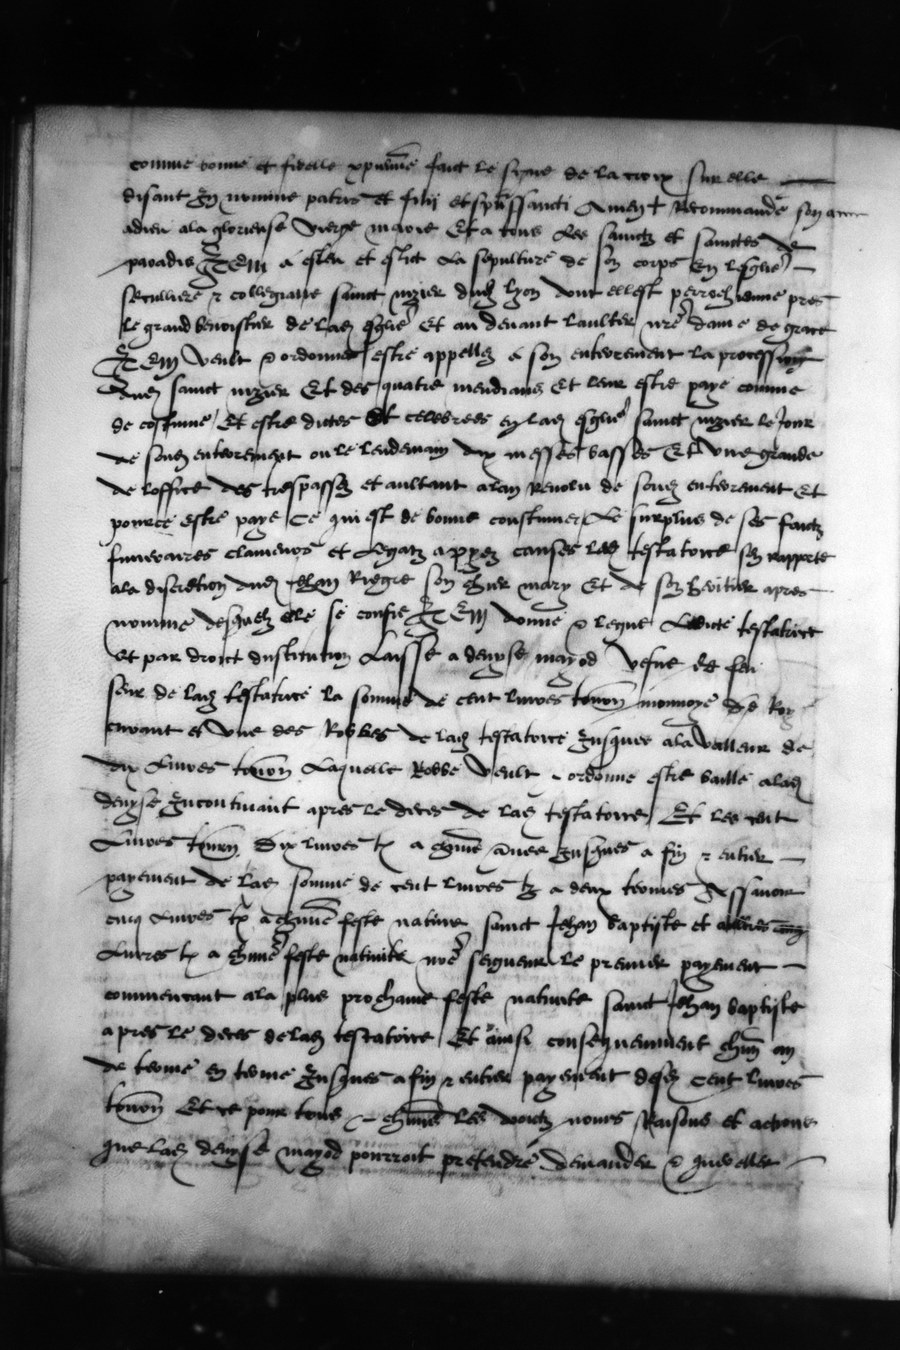 comme bonne et fidelle xpienne faict le signe de la croix sur elle
disant In nomine patris et filij et spussancti Amen + Recommande son ame
a dieu a la glorieuse vierge marie Et a tous les sainctz et sainctes de
paradis ITEM a esleu et eslit La sepulture de son corps En leglise
seculliere & collegiatte sainct nizier dud lyon dont ellest perrochienne pres
le grand benoistier de lad eglise Et au devant laultier nre dame de grace
ITEM veult & ordonne estre appellez a son enterrement la procession
dud sainct nizier Et des quatre mendians Et leur estre paye comme
de costume Et estre dictes Et celebrees en lad eglise sainct nizier le Jour
de soud enterrement ou le lendemain dix messes basses Et une grande
de loffice des trespassez et aultant a lan Revolu de soud enterrement Et
pource estre paye ce qui est de bonne coustume Le surplus de ses faictz
funeraires clameurs et Legatz appez causes lad testatrice sen rapporte
a la discretion dud Jehan son cher mary Et de son heritier apres
nomme desquelz elle se confie ITEM donne & legue Ladicte testatrice
Et par droict dinstitution Laisse a denyse mayod vefve de feu
seur de lad testatrice la somme de cent livres tourn monnoye de Roy
courant et une des Robbes de lad testatrice Jusques a la valleur de
dix Livres tourn Laquelle Robbe veult & ordonne estre baille a lad
denyse Incontinant apres le deces de lad testatrice Et les cent
Livres tourn Dix livres tz a chune annee Jusques a fin & entier
payement de lad somme de cent livres tz a deux termes Assavoir
cinq Livres tz a chune feste nativite sainct Jehan baptiste et aultres cinq
Livres tz a chune feste nativite nre seigneur le premier payement
commencant a la plus prochaine feste nativite sainct Jehan baptiste
apres le deces de lad testatrice Et ainsi consequemment chun an
de terme en terme Jusques a fin & entier payement desd Cent livres
tourn Et ce pour tous & chuns les droictz noms Raisons et actions
que lad denyse mayod pourroit pretendre demander & quereller